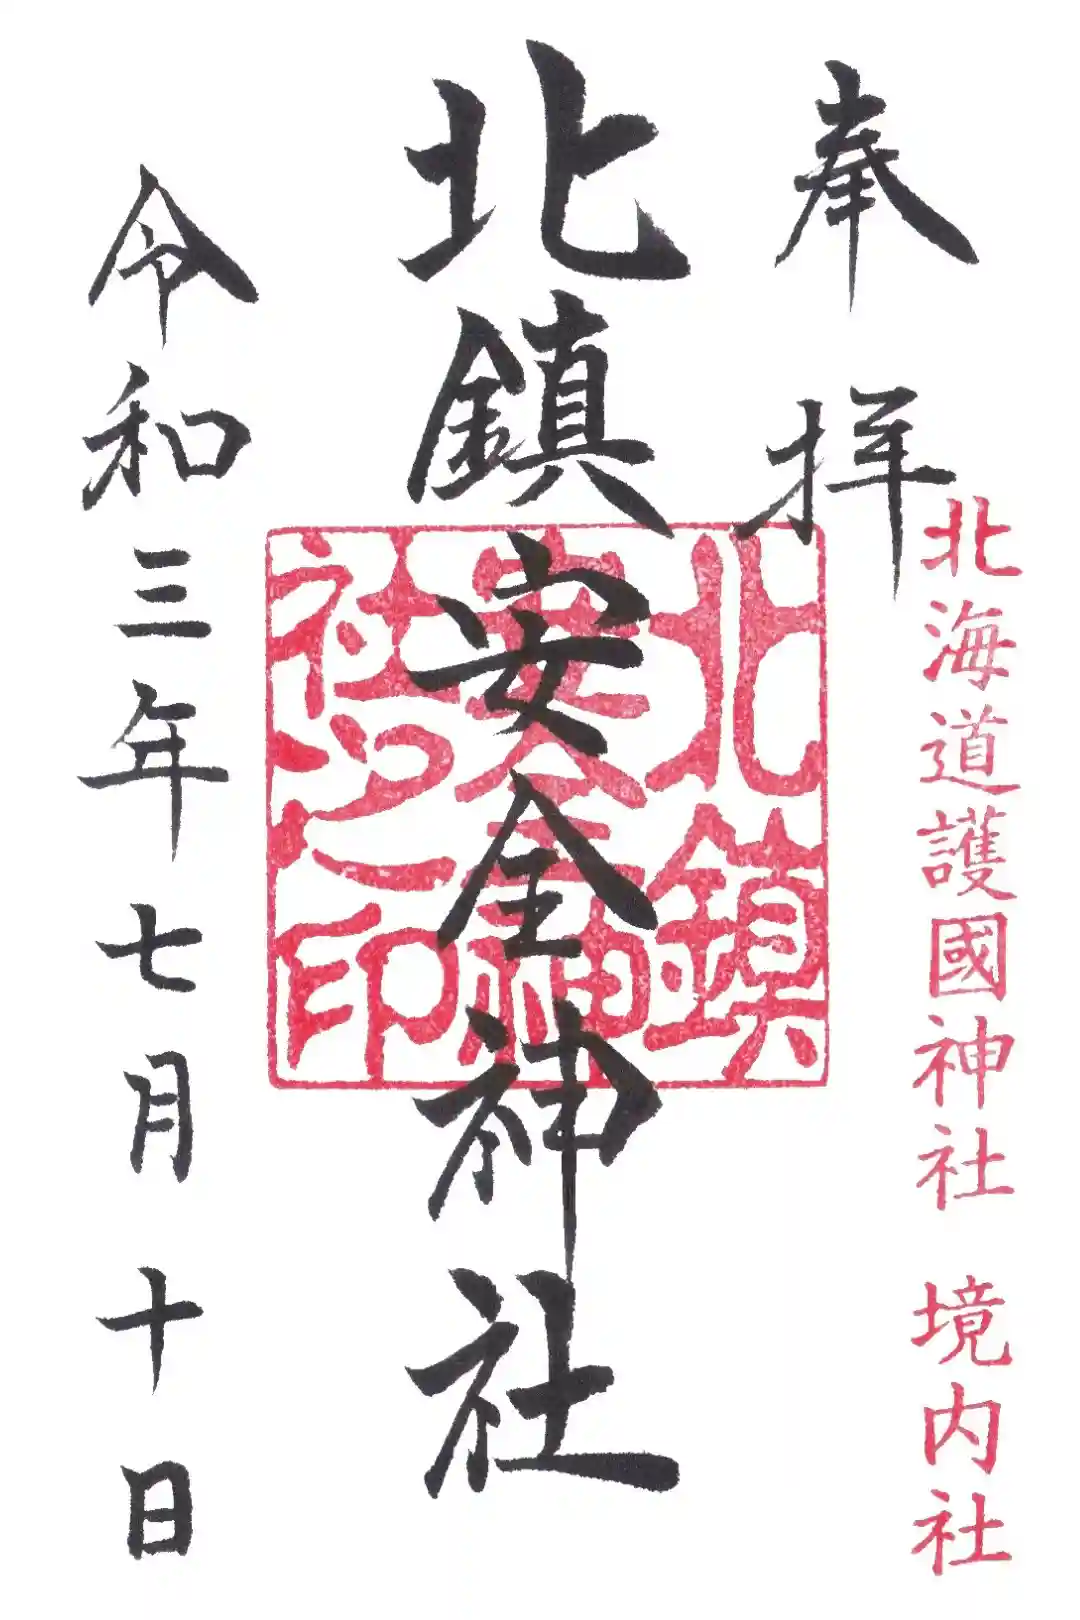 奉拝
北海道護國神社 境内社
北鎮安全神社
北鎮
安全神
社之印
令和三年七月十日